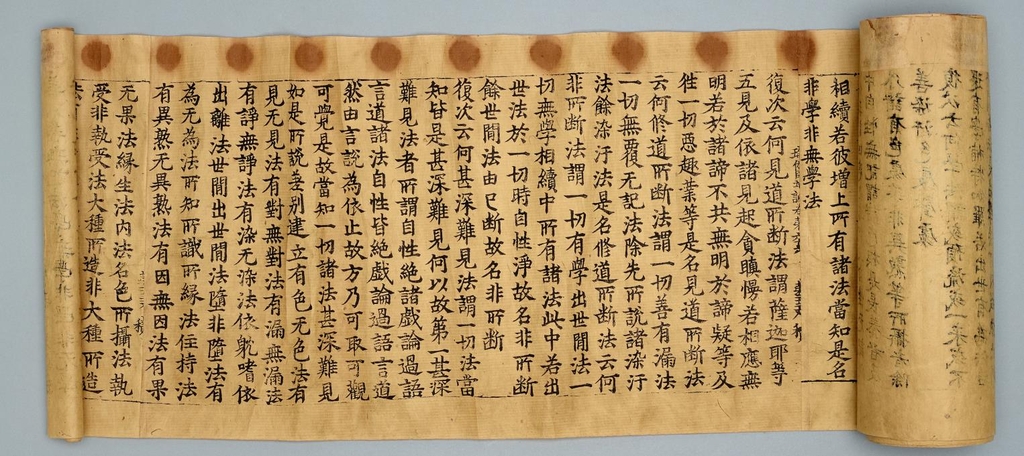 相續若彼增上所有諸法當知是名
非學非無學法
復次云何見道所斷法謂薩迦耶等
五見及依諸見起貪瞋慢若相應無
明若於諸諦不共無明於諦疑等及
往一切惡趣業等是名見道所斷法
云何修道所斷法謂一切善有漏法
一切無覆无記法除先所說諸染汙
法餘染汙法是名修道所斷法云何
非所斷法謂一切有學出世間法一
切無學相續中所有諸法此中若出
世法於一切時自性淨故名非所斷
餘世間法由已斷故名非所斷
復次云何甚深難見法謂一切法當
知皆是甚深難見何以故第一甚深
難見法者所謂自性絶諸戲論過語
言道諸法自性皆絶戲論過語言道
然由言說為依止故方乃可取可觀
可覺是故當知一切諸法甚深難見
如是所說差別建立有色无色法有
見无見法有對無對法有漏無漏法
有諍無諍法有染无染法依躭嗜依
出離法世間出世間法墮非墮法有
為无為法所知所識所緣法住持法
有異熟无異熟法有因無因法有果
无果法緣生法内法名色所攝法執
受非執受法大種所造非大種所造